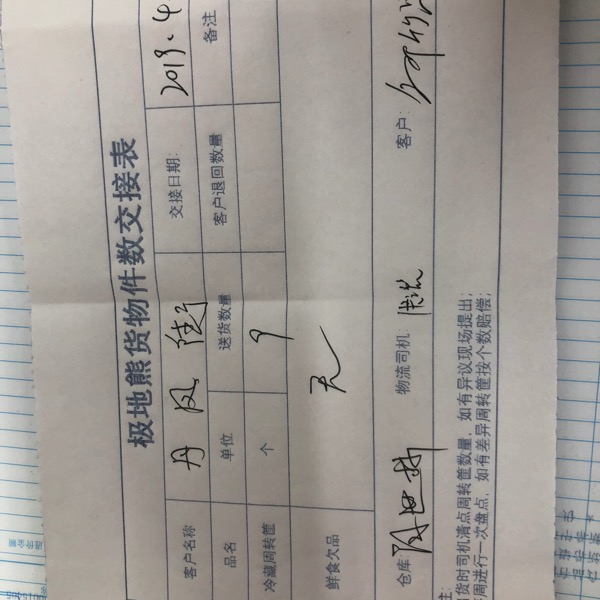 极地熊货物件数交接表
客户名称 丹凤街 交接日期: 2019.4
品名 单位 送货数量 客户退回数量 备注
冷藏周转筐 个 9
鲜食欠品 无
仓库 物流司机: 客户:
货时司机清点周转筐数量，如有异议现场提出；
周进行一次盘点，如有差异周转筐按个数赔偿；